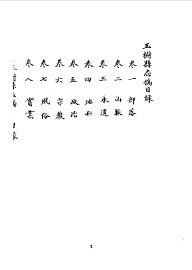 玉樹縣志稿目錄
卷一 部落
卷二 山脈
卷三 水道
卷四 地形
卷五 政治
卷六 宗教
卷七 風俗
卷八 實業
1